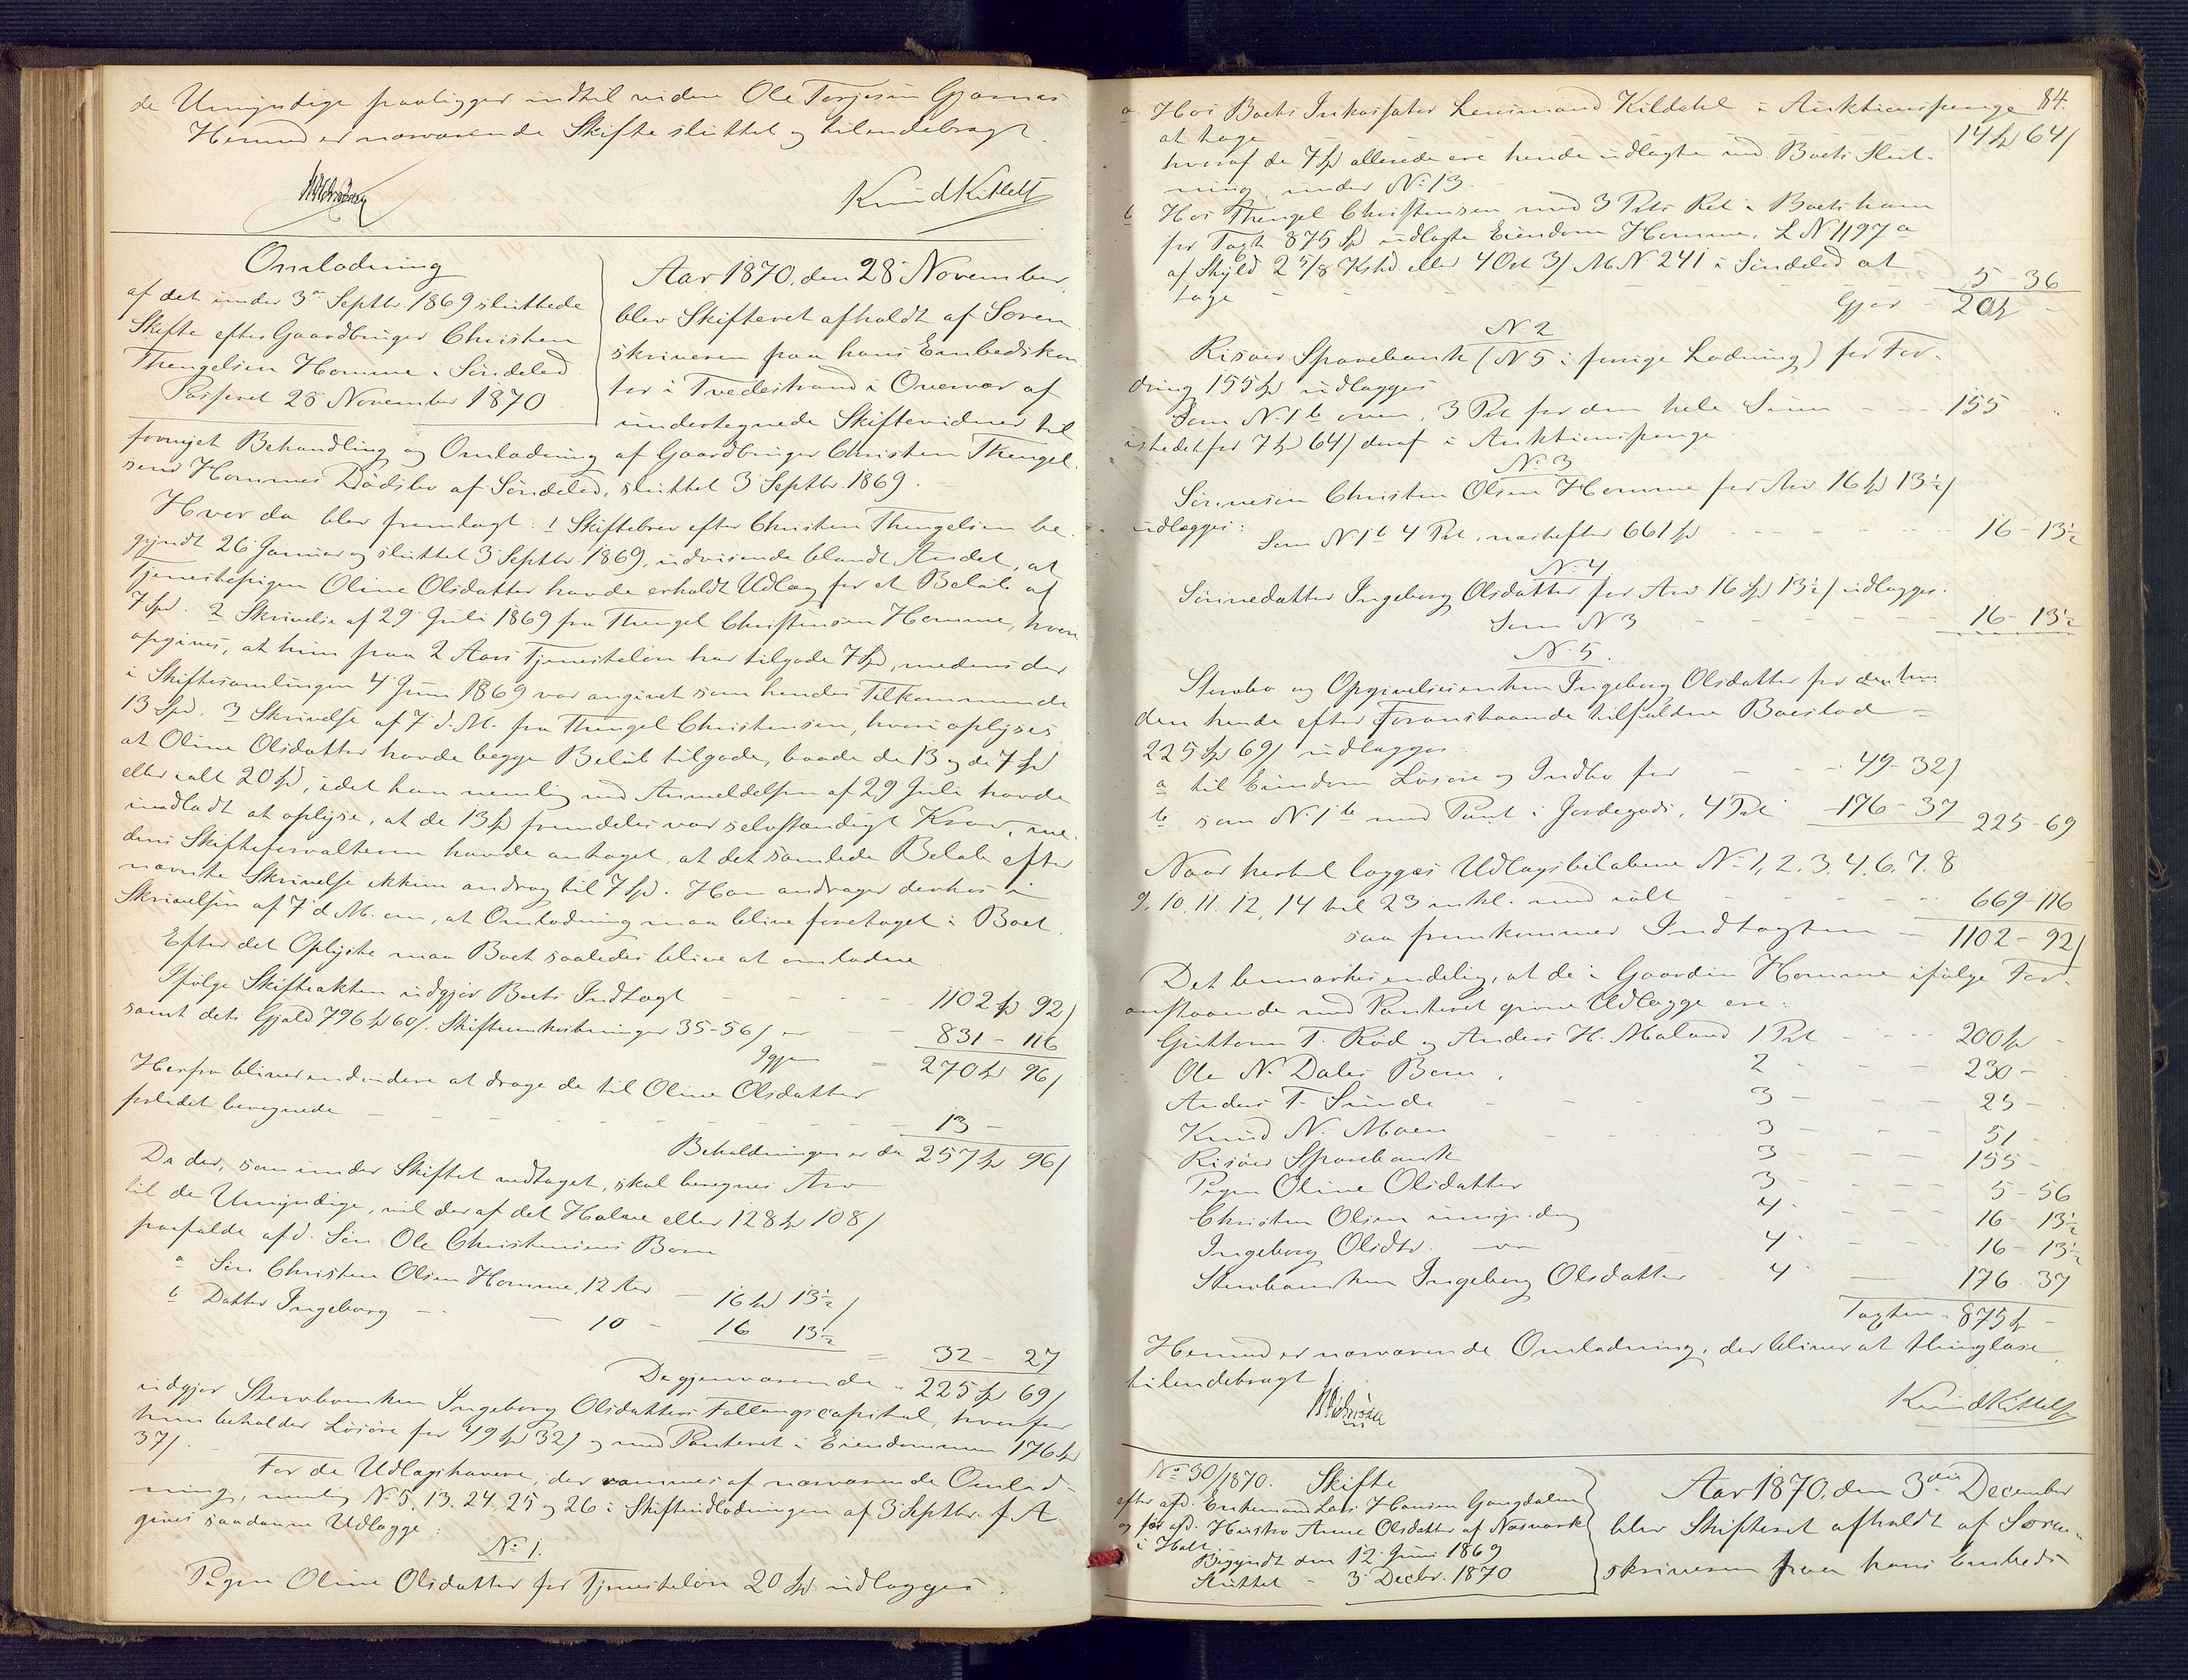 de Umyndige paaligger indtil videre Ole Torjesen Gjernes
Hermed er nærværende Skifte sluttet og tilendebragt.
Knud Kittelf
Omlodning
af det under 3die Septbr. 1869 sluttede
Skifte efter Gaardbruger Christen
Thengelsen Homme i Søndeled
Passeret 28 November 1870
Aar 1870, den 28 November,
blev Skifteret afholdt af Soren-
skriveren paa hans Embedskon-
tor i Tvedestrand i Overvær af
undertegnede Skiftevidner til
fornyet Behandling og Omlodning af Gaardbruger Christen Thengel-
sens Hommes Dødsbo af Søndeled, sluttet 3 Septbr. 1869.
Hvor da blev fremlagt: 1 Skiftebrev efter Christen Thengelsen be-
gyndt 26 Januar og sluttet 3 Septbr. 1869, udvisende blandt Andet, at
Tjenestepigen Oline Olsdatter havde erholdt Udlæg for et Beløb af
7 Spd. 2 Skrivelse af 29 Juli 1869 fra Thengel Christensen Homme, hvori
opgives, at hun paa 2 Aars Tjenesteløn har tilgode 7 Spd, medens der
i Skiftesamlingen 4 Juni 1869 var angivet som hendes Tilkommende
13 Spd. 3 Skrivelse af 7 d. M. fra Thengel Christensen, hvori oplyses
at Oline Olsdatter havde begge Beløb tilgode, baade de 13 og de 7 Spd
eller ialt 20 Spd, idet han nemlig ved Anmeldelsen af 29 Juli havde
undladt at oplyse, at de 13 Spd fremdeles var selvstændigt Krav, me-
dens Skifteforvalteren havde antaget, at det samlede Beløb efter
nævnte Skrivelse ikkun androg til 7 Spd. Han andrager derhos i
Skrivelsen af 7 d. M. om, at Omlodning maa blive foretaget i Boet.
Efter det Oplyste maa Boet saaledes blive at omlodne
Ifølge Skifteakten udgjør Boets Indtægt - - - - 1102 Spd 92/
samt dets Gjæld 796 Spd 60/. Skifteomkostninger 35-56/ er - 831 - 116
Igjen - 270 Spd 96/
Herfra bliver endvidere at drage de til Oline Olsdatter
forlidet beregnede - - - - 13 -
Beholdningen er da 257 Spd 96/
Da der, som under Skiftet vedtaget, skal beregnes Arv
til de Umyndige, vil der af det Halve eller 128 Spd 108/
paafalde afd. Søn Ole Christensens Børn
a Søn Christen Olsen Homme, 12 Aar - 16 Spd 13½/
b Datter Ingeborg - 10 - 16 13½
= 32 - 27
De gjenværende - 225 Spd 69/
udgjør Sterboenken Ingeborg Olsdatters Fællangscapital, hvorfor
hun beholder Løsøre for 49 Spd 32/ og med Panteret i Eiendommen 176 Spd
37/.
For de Udlægshavere, der rammes af nærværende Omlod-
ning, nemlig No 5, 13, 24, 25 og 26 i Skifteudlodningen af 3 Septbr. f. A.
gives saadanne Udlægge:
No 1.
Pigen Oline Olsdatter for Tjenesteløn 20 Spd udlægges.
84.
a Hos Boets Inkassator Lensmand Kildahl i Auktionspenge
at tage 14 Spd 64/
hvoraf de 7 Spd allerede ere hende udlagte ved Boets Slut-
ning under No 13.
b Hos Thengel Christensen med 3 Pts Ret i Boets ham
for Taxt 875 Spd udlagte Eiendom Homme, L No 497 a
af Skyld 2 5/8 Kshd. eller 4 Ort 3/ M No 241 i Søndeled at
tage - - - - 5 - 36
Gjør - 20 Spd -
No 2
Risøer Sparebank (No 5 i forrige Lodning) for For-
dring 155 Spd udlægges
Som No 1 b oven, 3 Prt for den hele Sum - - 155 "
istedetfor 7 Spd 64/ deraf i Auktionspenge.
No 3
Sønnesøn Christen Olsen Homme for Arv 16 Spd 13½/
udlægges:
Som No 1 b 4 Prt. næstefter 661 Spd - - - - 16 - 13½
No 4.
Sønnedatter Ingeborg Olsdatter for Arv 16 Spd 13½/ udlægges.
Som No 3 - - - - 16 - 13½
No 5.
Sterbo og Opgivelsesenken Ingeborg Olsdatter for
den hende efter Foranstaaende tilfaldne Boeslod =
225 Spd 69/ udlægges
a til Eiendom Løsøre og Indbo for - - - 49 - 32/
b som No 1 b med Pant i Jordegods, 4 Prt - 176 - 37 225 - 69
Naar hertil lægges Udlægsbeløbene No 1, 2, 3, 4, 6, 7, 8
9, 10, 11, 12, 14 til 23 inkl. med ialt - - - - 669 - 116
saa fremkommer Indtægten - 1102 - 92/
Det bemærkes endelig, at de i Gaarden Homme ifølge For-
anstaaende med Panteret givne Udlægge ere:
Guttorm T. Rød og Anders H. Moland 1 Prt - - - 200 Spd -
Ole N. Dales Børn, 2 - - - 230 -
Anders T. Sunde - - - 3 - - - 25 -
Knud N. Moen - - - 3 - - - 51 -
Risøer Sparebank 3 - - - 155 -
Pigen Oline Olsdatter 3 - - - 5 - 56
Christen Olsen umyndig 4 - - - 16 - 13½
Ingeborg Olsdtr. - 4 - - - 16 - 13½
Sterboenken Ingeborg Olsdatter 4 - 176 - 37
Taxten - 875 Spd -
Hermed er nærværende Omlodning, der bliver at thinglæse,
tilendebragt
Knud Kittelf
No 30/1870. Skifte
efter afd. Enkemand Lars Hansen Gangdalen
og før afd. Hustro Anne Olsdatter af Næsverk
i Holt.
Begyndt den 12 Juni 1869
Sluttet - 3 Decbr. 1870
Aar 1870, den 3die December
blev Skifteret afholdt af Soren-
skriveren paa hans Embeds-